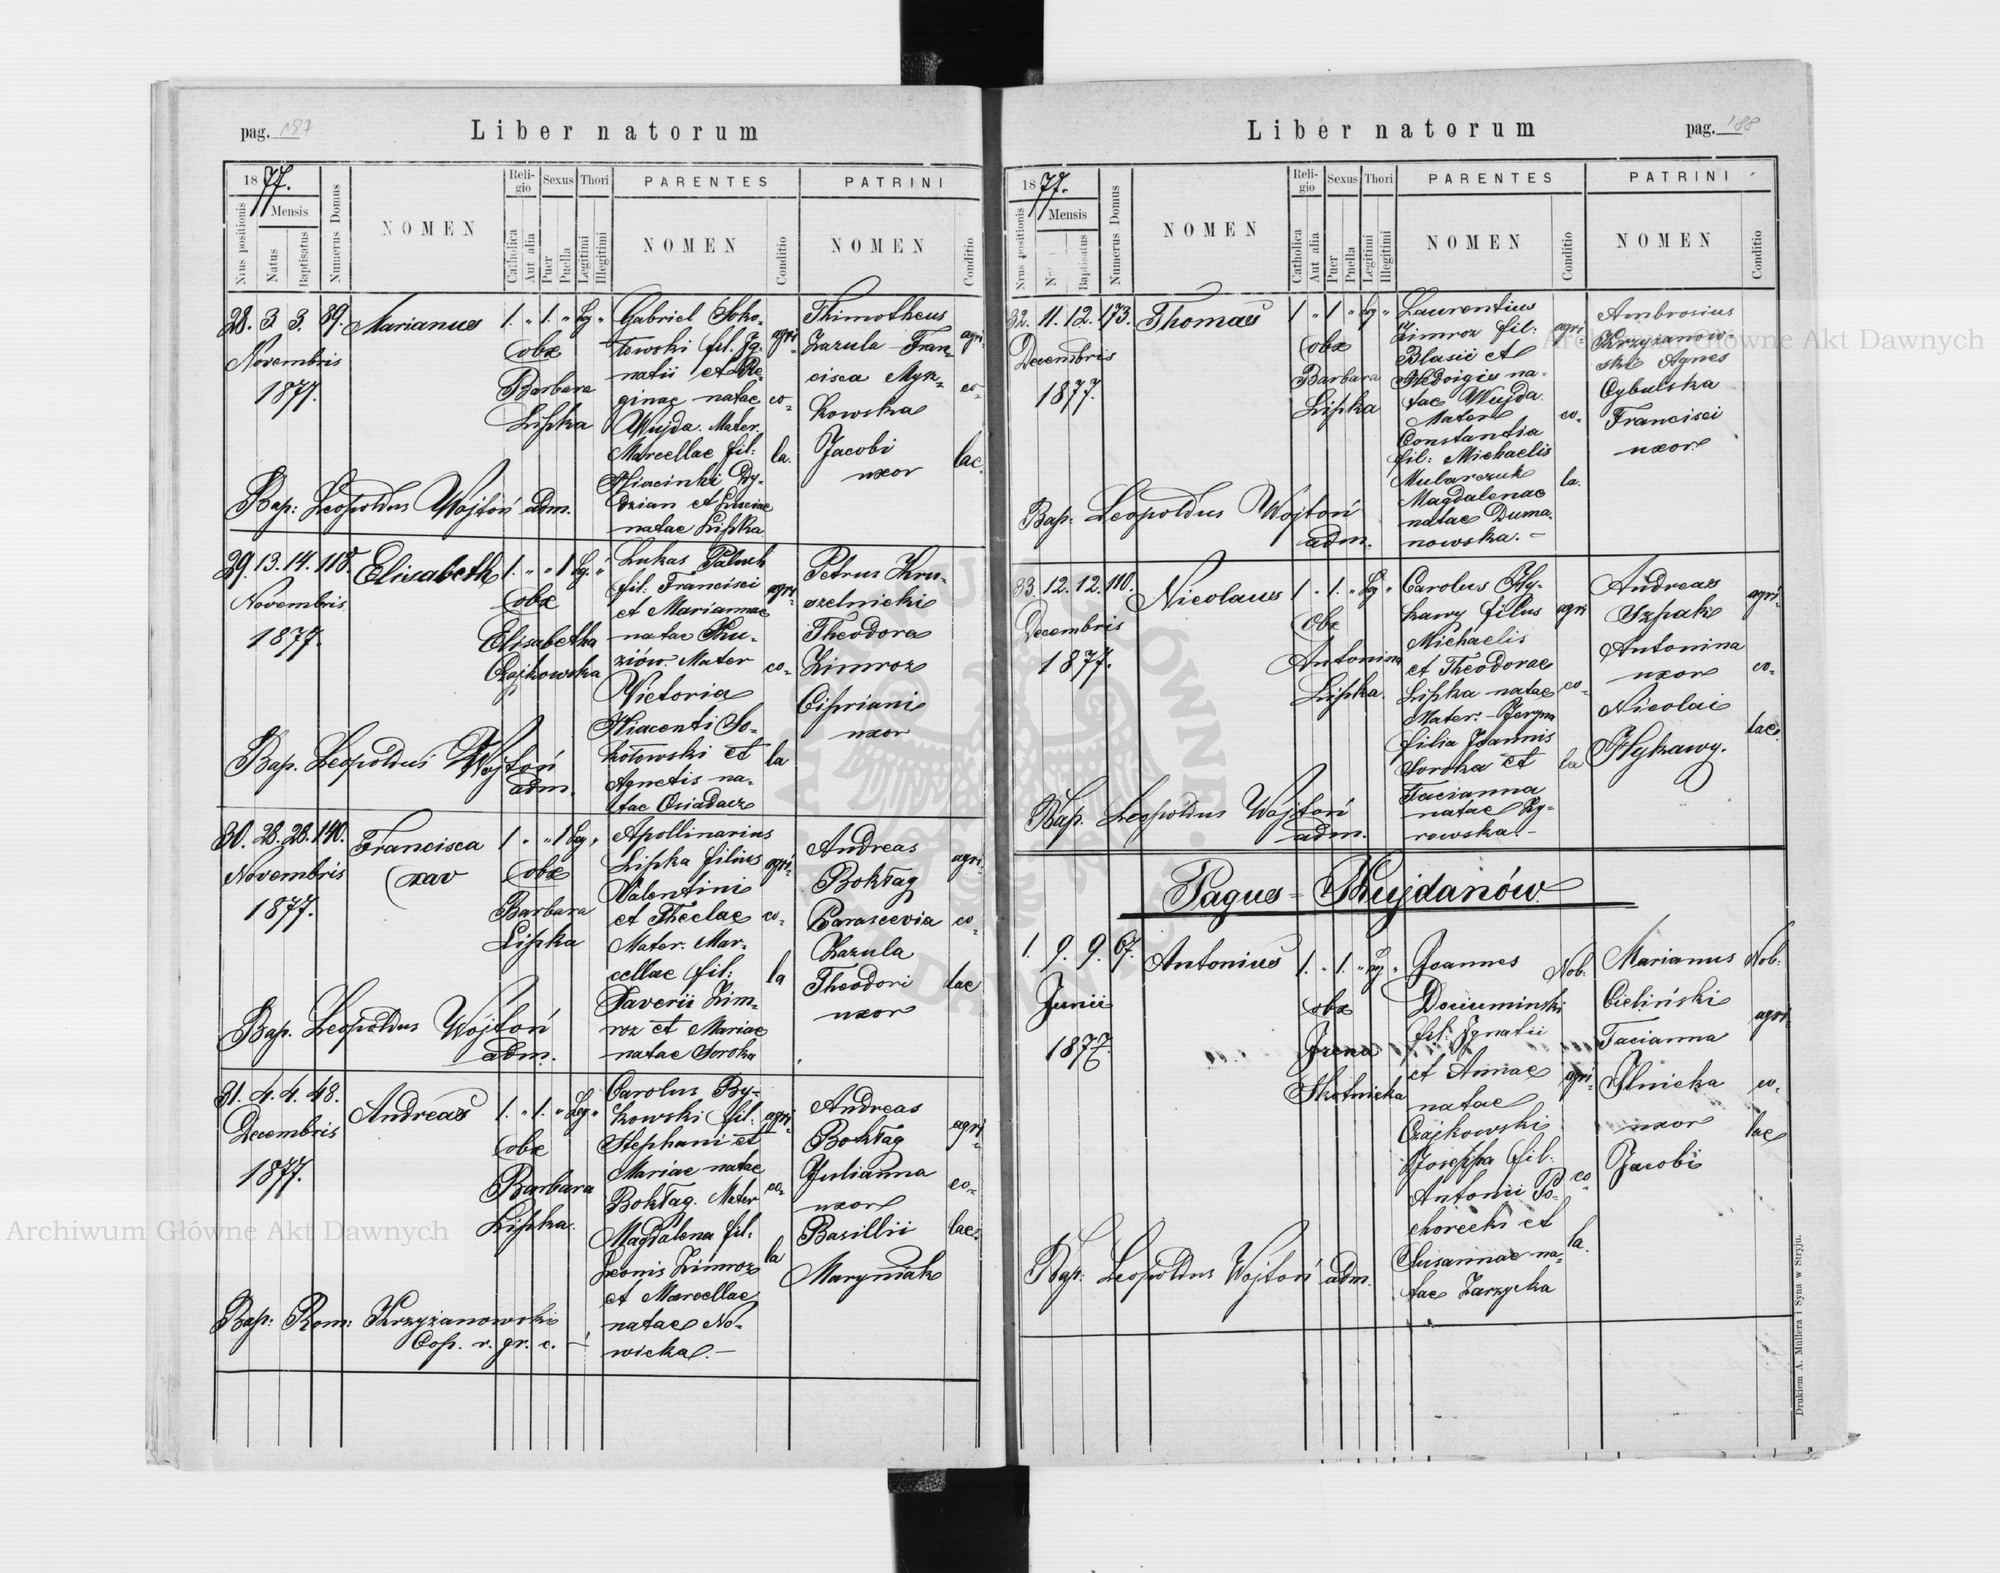 pag. 187
Liber natorum
1877.
Mensis
Nrus positionis
Natus
Baptisatus
Numerus Domus
NOMEN
Religio
Catholica
Aut alia
Sexus
Puer
Puella
Thori
Legitimi
Illegitimi
PARENTES
NOMEN
Conditio
PATRINI
NOMEN
Conditio
28. 3. 3. 89. Marianus 1. " 1. " Lg "
Novembris
1877.
obx
Barbara
Lipka
Gabriel Soko-
łowski fil. Ig-
natii et Re-
ginae natae
Wujda. Mater.
Marcellae fil:
Hiacinki Dy-
dzian et Luciae
natae Lipka
agri-
co-
la.
Thimotheus
Zazula Fran-
cisca Mysz-
kowska
Jacobi
uxor
agri-
co-
lae.
Bap: Leopoldus Wojtoń adm.
29. 13. 14. 118. Elisabeth 1. " " 1 Lg. "
Novembris
1877.
obx
Elisabetha
Czajkowska
Lukas Paluch
fil: Francisci
et Mariannae
natae
Mater
Victoria
Hiacenti So-
kołowski et
Agnetis na-
tae Osiadacz
agri-
co-
la
Petrus Kru-
szelnicki
Theodora
Zimroz
Cipriani
uxor
Bap. Leopoldus Wojtoń
adm.
30. 28. 28. 140. Francisca 1 " " 1 Lg "
Novembris
1877.
xav
obx
Barbara
Lipka
Apollinarius
Lipka filius
Valentini
et Theclae
Mater. Mar-
cellae fil:
Xaverii Zim-
roz et Mariae
natae Soroka
agri-
co-
la
Andreas
Bokłag
Parascevia
Zazula
Theodori
uxor
agri-
co-
lae
Bap. Leopoldus Wojtoń
adm.
31. 4. 4. 48. Andreas 1. " 1. " Lg "
Decembris
1877.
obx
Barbara
Lipka.
Carolus By-
kowski fil:
Stephani et
Mariae natae
Bokłag. Mater
Magdalena fil:
Leonis Zimroz
et Marcellae
natae No-
wicka. -
agri-
co-
la
Andreas
Bokłag
Julianna
uxor
Basillii
Maryniak
agri-
co-
lae
Bap: Rom: Krzyżanowski
Cop. r. gr. c. -
Liber natorum
pag. 188
1877.
Mensis
Nrus positionis
Baptisatus
Numerus Domus
NOMEN
Religio
Catholica
Aut alia
Sexus
Puer
Puella
Thori
Legitimi
Illegitimi
PARENTES
NOMEN
Conditio
PATRINI
NOMEN
Conditio
32. 11. 12. 173. Thomas 1 " 1 " Lg "
Decembris
1877.
obx
Barbara
Lipka
Laurentius
Zimroz fil:
Blasii et
Hedvigis na-
tae Wujda
Mater
Constantia
fil: Michaelis
Mularczuk
Magdalenae
natae Duma-
nowska. -
agri
co-
la.
Ambrosius
Krzyżanow-
ski Agnes
Cybulska
Francisci
uxor
Bap: Leopoldus Wojtoń
adm.
33. 12. 12. 110. Nicolaus 1 " 1. " Lg "
Decembris
1877.
obx
Antonina
Lipka.
Carolus Hy-
kawy filius
Michaelis
et Theodorae
Lipka natae
Mater:
filia Joannis
Soroka et
Tacianna
natae Ży-
rowska. -
agri
co-
la
Andreas
Szpak
Antonina
uxor
Nicolai
Hykawy.
agri-
co-
lae
Bap. Leopoldus Wojtoń
adm.
Pagus = Thujdanów
1. 9. 9. 67. Antonius 1. " 1. " Lg "
Junii
1877.
obx
Irena
Skotnicka
Joannes
fil: Ignatii
et Annae
natae
Czajkowski
Joseppa fil:
Antonii Po-
chorecki et
Susannae na-
tae Zarzycka
Nob:
agri-
co-
la.
Marianus
Cieliński
Tacianna
Ilnicka
uxor
Jacobi
Nob:
agri-
co-
lae
Bap: Leopoldus Wojtoń adm.
Drukiem A. Müllera i Syna w Stryju.
Archiwum Główne Akt Dawnych
Archiwum Główne Akt Dawnych